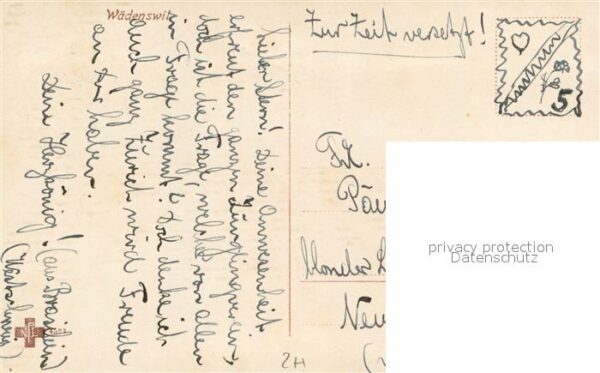 Wädenswil
Zur Zeit versetzt!
5
Lieber Stern! Deine Anwesenheit
erfreut den ganzen Jünglingverein,
doch ist die Frage, welcher von allen
in Frage kommt? Doch denke ich
auch ganz Zürich wird Freude
an Dir haben.
Deine Herzkönig!
(aus
Frl.
blonder
2H
privacy protection
Datenschutz